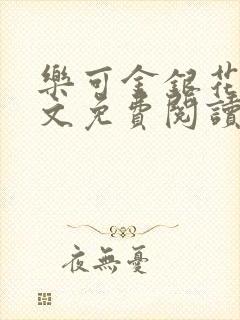 樂可金銀花
文免費閱讀
夜無憂